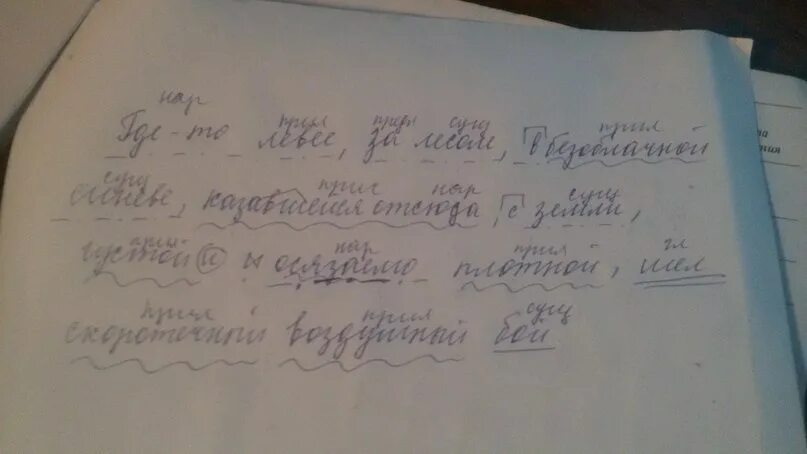 нар
Где-то левее, за лесом, в безоблачной
прил предл сущ прил
синеве, казавшейся отсюда, с земли,
сущ прич нар сущ
густой и и осязаемо плотной, шел
прил нар прил гл
скоротечный воздушный бой
прил прил сущ
на
ния